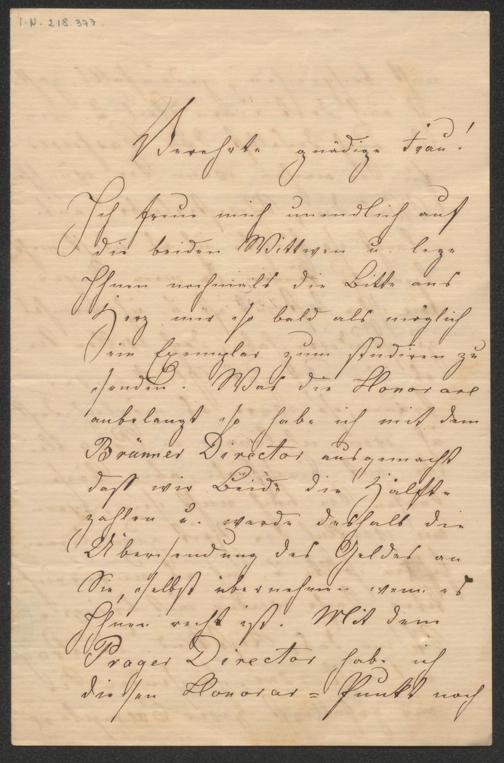 I.N. 218.377
Verehrte gnädige Frau!
Ich freue mich unendlich auf
die beiden Wittwen u. lege
Ihnen nochmals die Bitte ans
Herz mir so bald als möglich
ein Exemplar zum studiren zu
senden. Was die Honorare
anbelangt so habe ich mit dem
Brünner Director ausgemacht
daß wir Beide die Hälfte
zahlen u. werde deshalb die
Übersendung des Geldes an
Sie, selbst übernehmen wenn es
Ihnen recht ist. Mit dem
Prager Director habe ich
diesen Honorar=Punkt noch